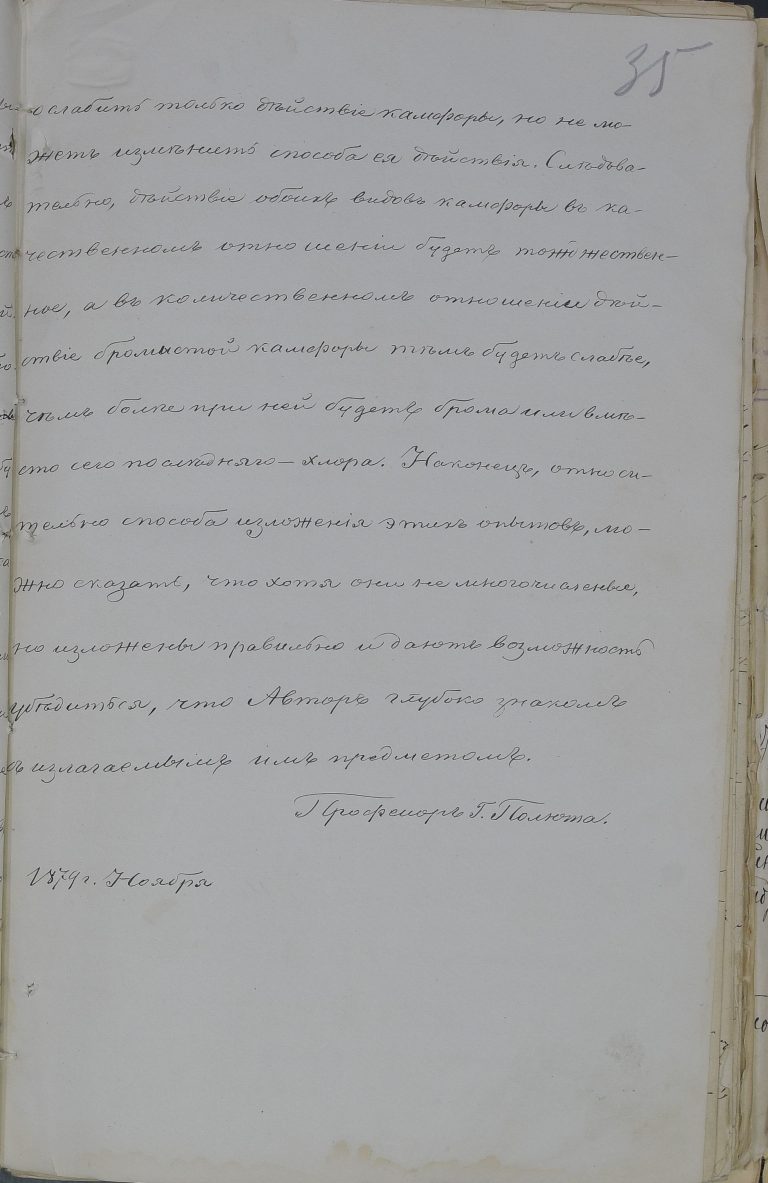 35
ослабить только дѣйствіе камфоры, но не мо-
жетъ измѣнить способа ея дѣйствія. Слѣдова-
тельно, дѣйствіе обоихъ видовъ камфоры въ ка-
чественномъ отношеніи будетъ тождествен-
ное, а въ количественномъ отношеніи дѣй-
ствіе бромистой камфоры тѣмъ будетъ слабѣе,
чѣмъ болѣе при ней будетъ брома или вмѣ-
сто сего послѣдняго — хлора. Наконецъ, относи-
тельно способа изложенія этихъ опытовъ, мо-
жно сказать, что хотя они не многочисленны,
но изложены правильно и даютъ возможность
убѣдиться, что Авторъ глубоко знакомъ
съ излагаемымъ имъ предметомъ.
Професоръ Г. Полюта.
1879 г. Ноября